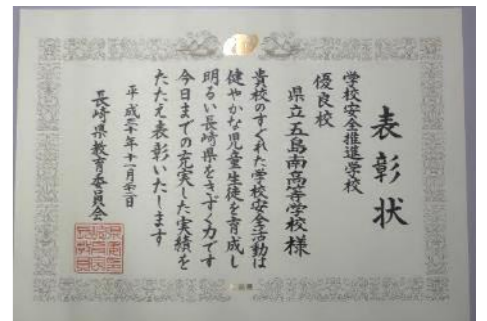 表彰状
学校安全推進学校
優良校
県立五島南高等学校様
貴校のすぐれた学校安全活動は
健やかな児童生徒を育成し
明るい長崎県をきずく力です
今日までの充実した実績を
たたえ表彰いたします
長崎県教育委員会